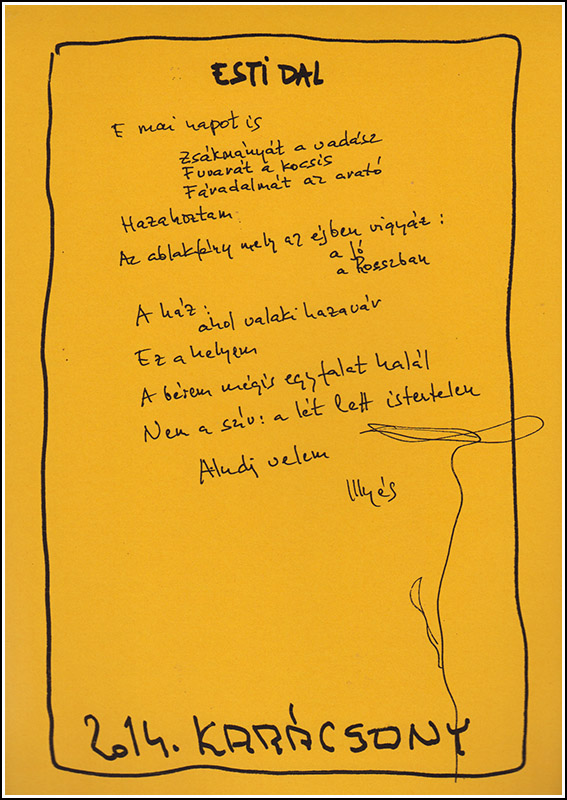 ESTI DAL
E mai napot is
Zsákmányát a vadász
Fuvarát a kocsis
Fáradalmát az arató
Hazahoztam
Az ablakfény mely az éjben vigyáz :
a Jó
a Rosszban
A ház :
ahol valaki hazavár
Ez a helyem
A bérem mégis egy falat halál
Nem a szív : a lét lett istentelen
Aludj velem
Illyés
2014. KARÁCSONY